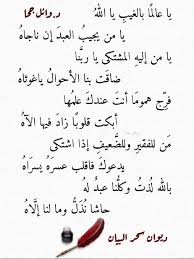 د. وائل جحا
يا عالمًا بالغيبِ يا اللهُ
يا من يجيبُ العبدَ إن ناجاهُ
يا من إليهِ المشتكى يا ربَّنا
ضاقَت بنا الأحوالُ يا غوثاهُ
فرِّج همومًا أنتَ عندكَ علمُها
أبكت قلوبًا زادَ فيها الآهُ
مَن للفقيرِ وللضَّعيفِ إذا اشتكى
يدعوكَ فاقلب عسرَهُ يسراهُ
باللهِ لُذتُ وكلُّنا عبدٌ له
حاشا نُذَلُّ وما لنا إلَّاهُ
ديوان سحر البيان